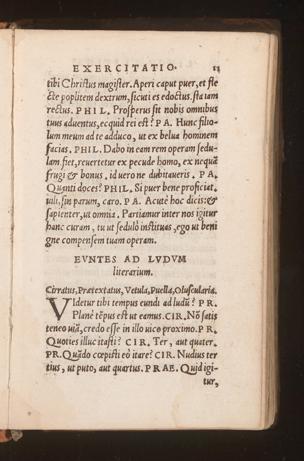 EXERCITATIO. 13
tibi Christus magister. Aperi caput puer, et fle
cte poplitem dextrum, sicuti es edoctus. sta iam
rectus. PHIL. Prosperus sit nobis omnibus
tuus aduentus, ecquid rei est? PA. Hunc filio-
lum meum ad te adduco, ut ex belua hominem
facias. PHIL. Dabo in eam rem operam sedu-
lam fiet, reuertetur ex pecude homo, ex nequā
frugi & bonus. id uero ne dubitaueris. PA.
Quanti doces? PHIL. Si puer bene proficiat.
uili, sin parum, caro. PA. Acutè hoc dicis: &
sapienter, ut omnia. Partiamur inter nos igitur
hanc curam, tu ut sedulò instituas, ego ut beni
gne compensem tuam operam.
EVNTES AD LVDVM
literarium.
Cirratus, Prætextatus, Vetula, Puella, Oluscularia.
VIdetur tibi tempus eundi ad ludū? PR.
Planè tēpus est ut eamus. CIR. Nō satis
teneo uiā, credo esse in illo uico proximo. PR.
Quoties illuc itasti? CIR. Ter, aut quater.
PR. Quādo cœpisti eò itare? CIR. Nudius ter
tius, ut puto, aut quartus. PRAE. Quid igi-
tur,